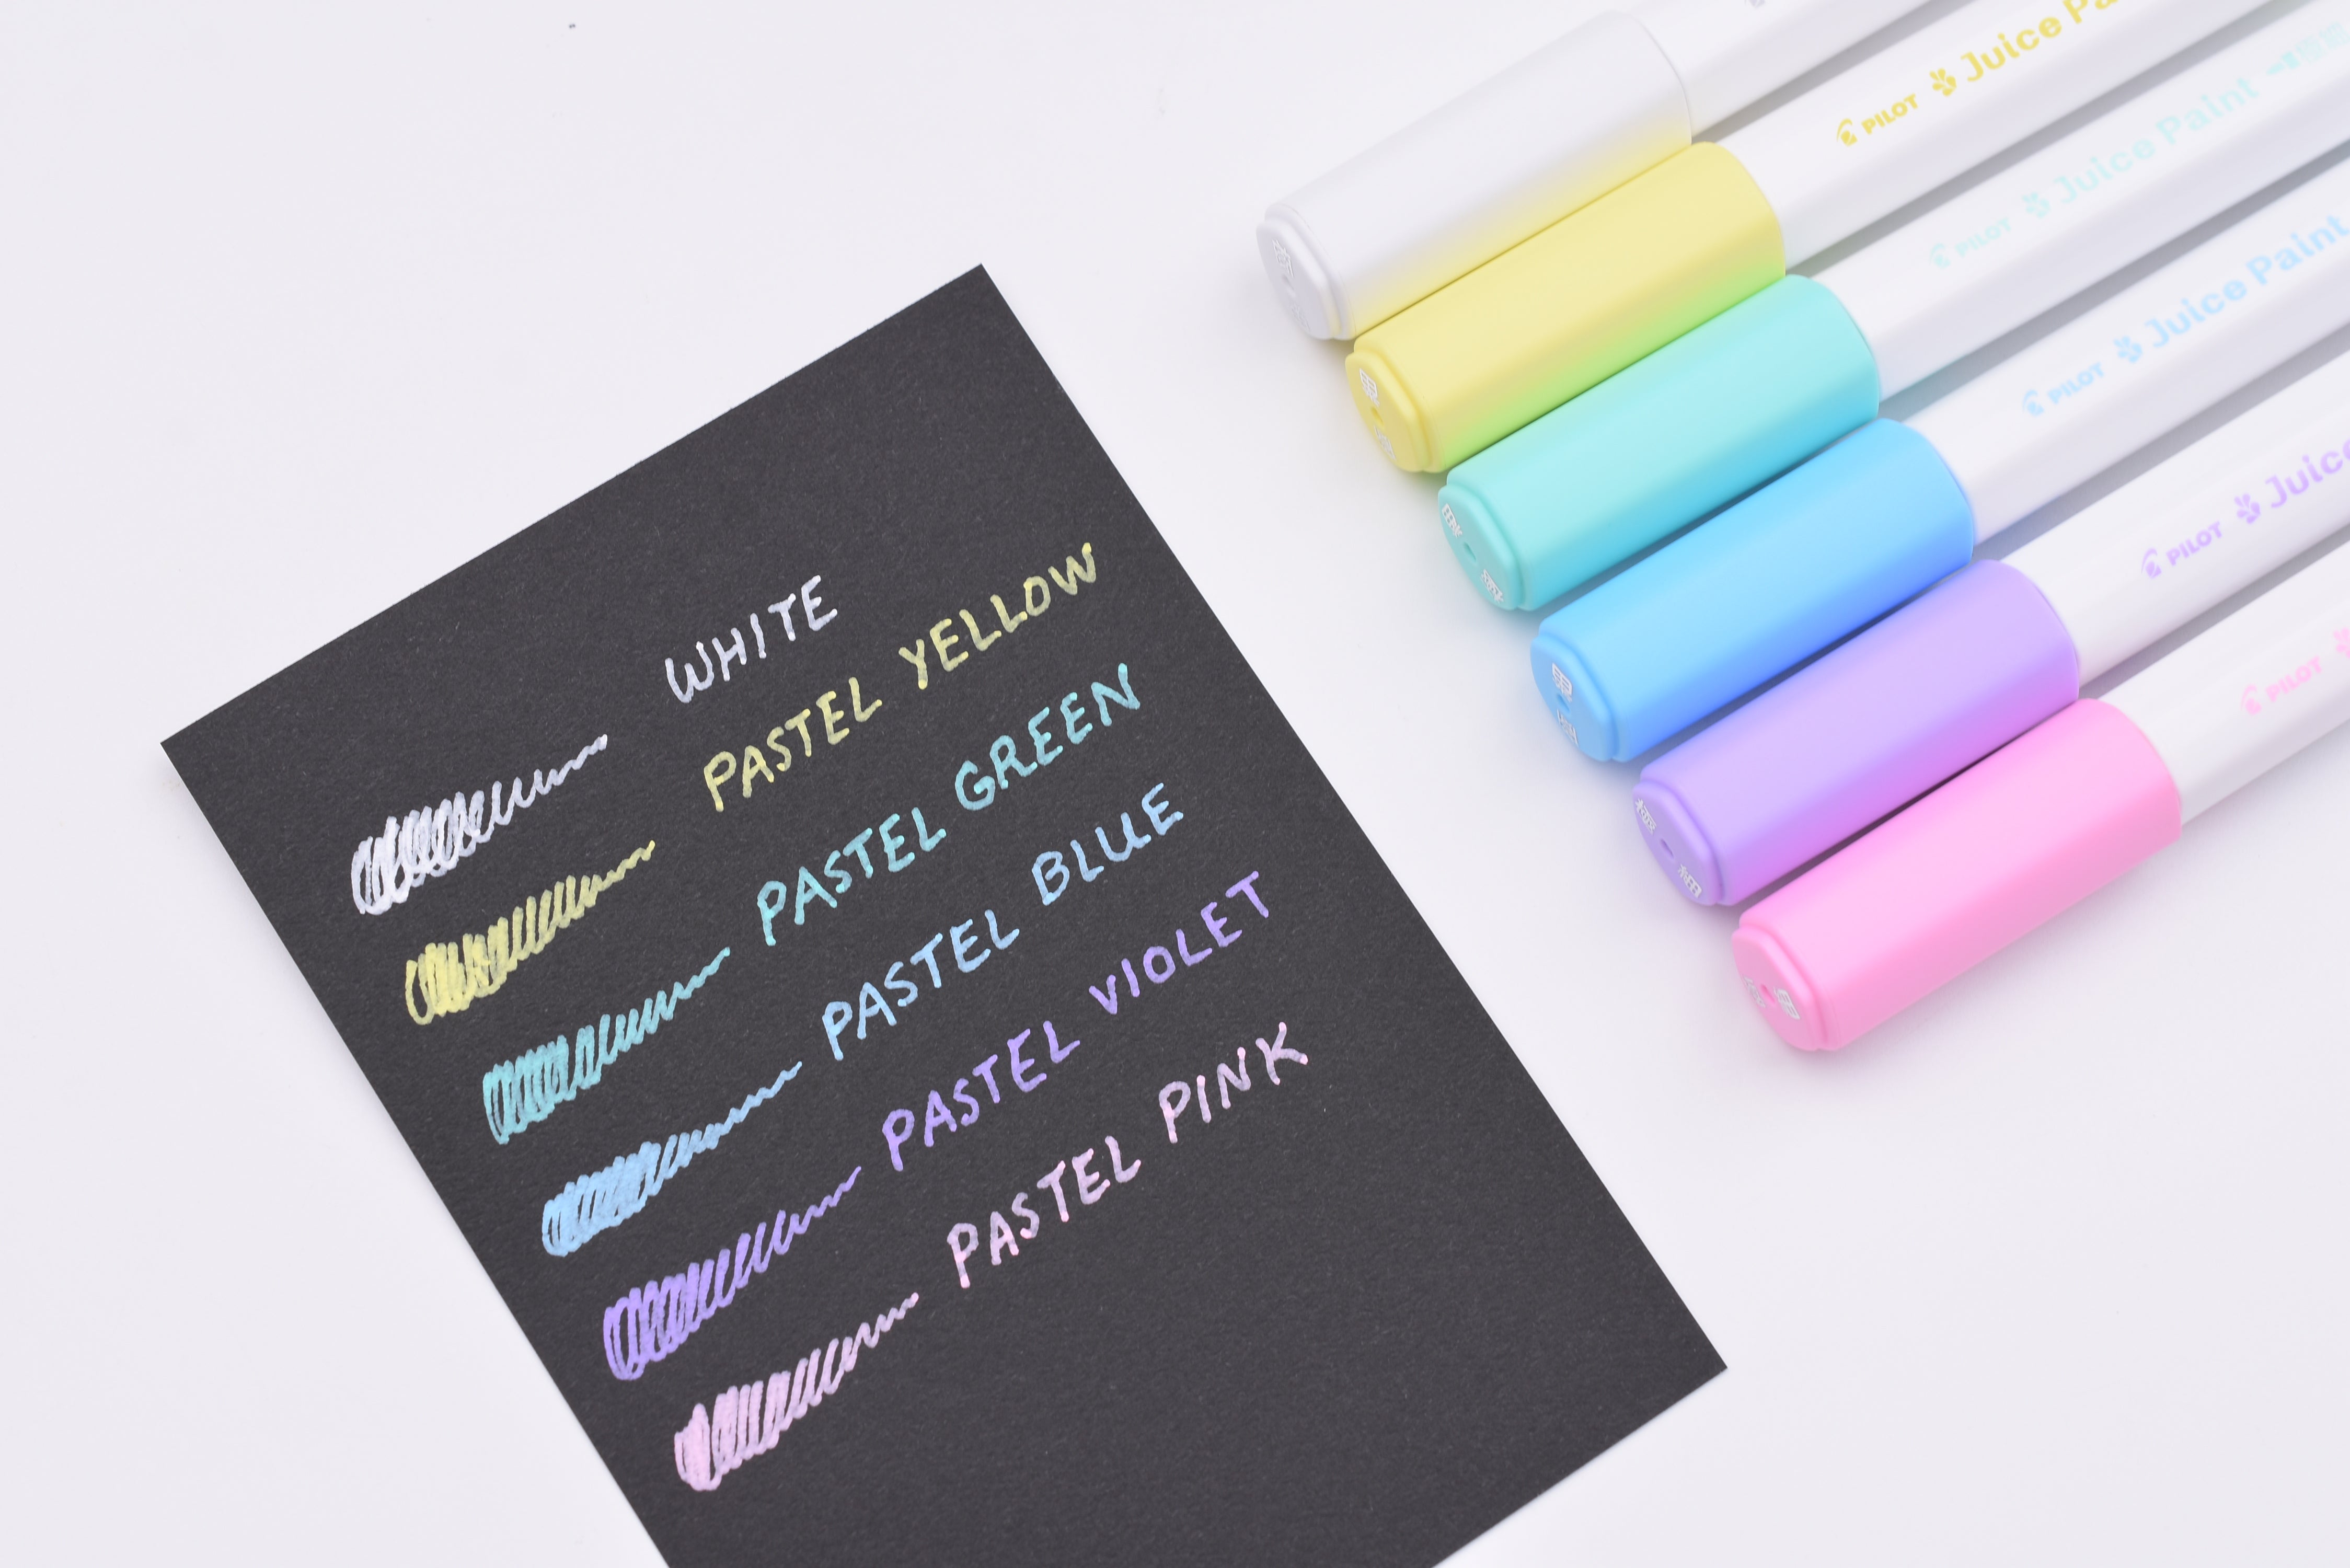 WHITE
PASTEL YELLOW
PASTEL GREEN
PASTEL BLUE
PASTEL VIOLET
PASTEL PINK
PILOT Juice
PILOT Juice Paint
PILOT Juice Paint
PILOT Juice
PILOT